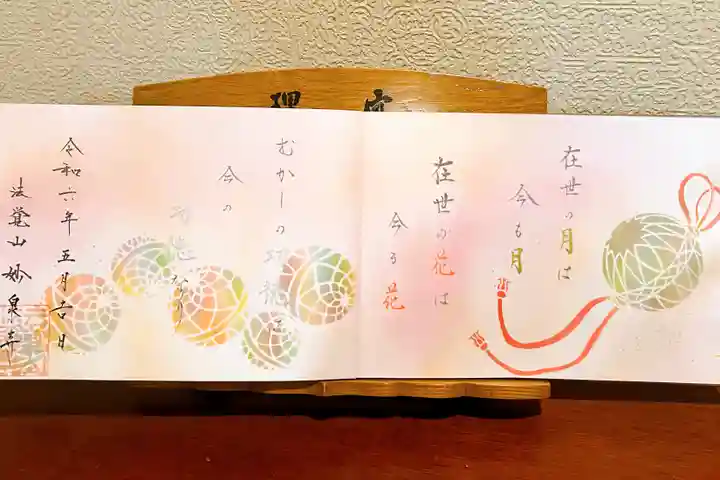 在世の月は
今も月
在世の花は
今も花
むかしの功徳は
今の
功徳なり
令和六年五月吉日
法覚山妙泉寺